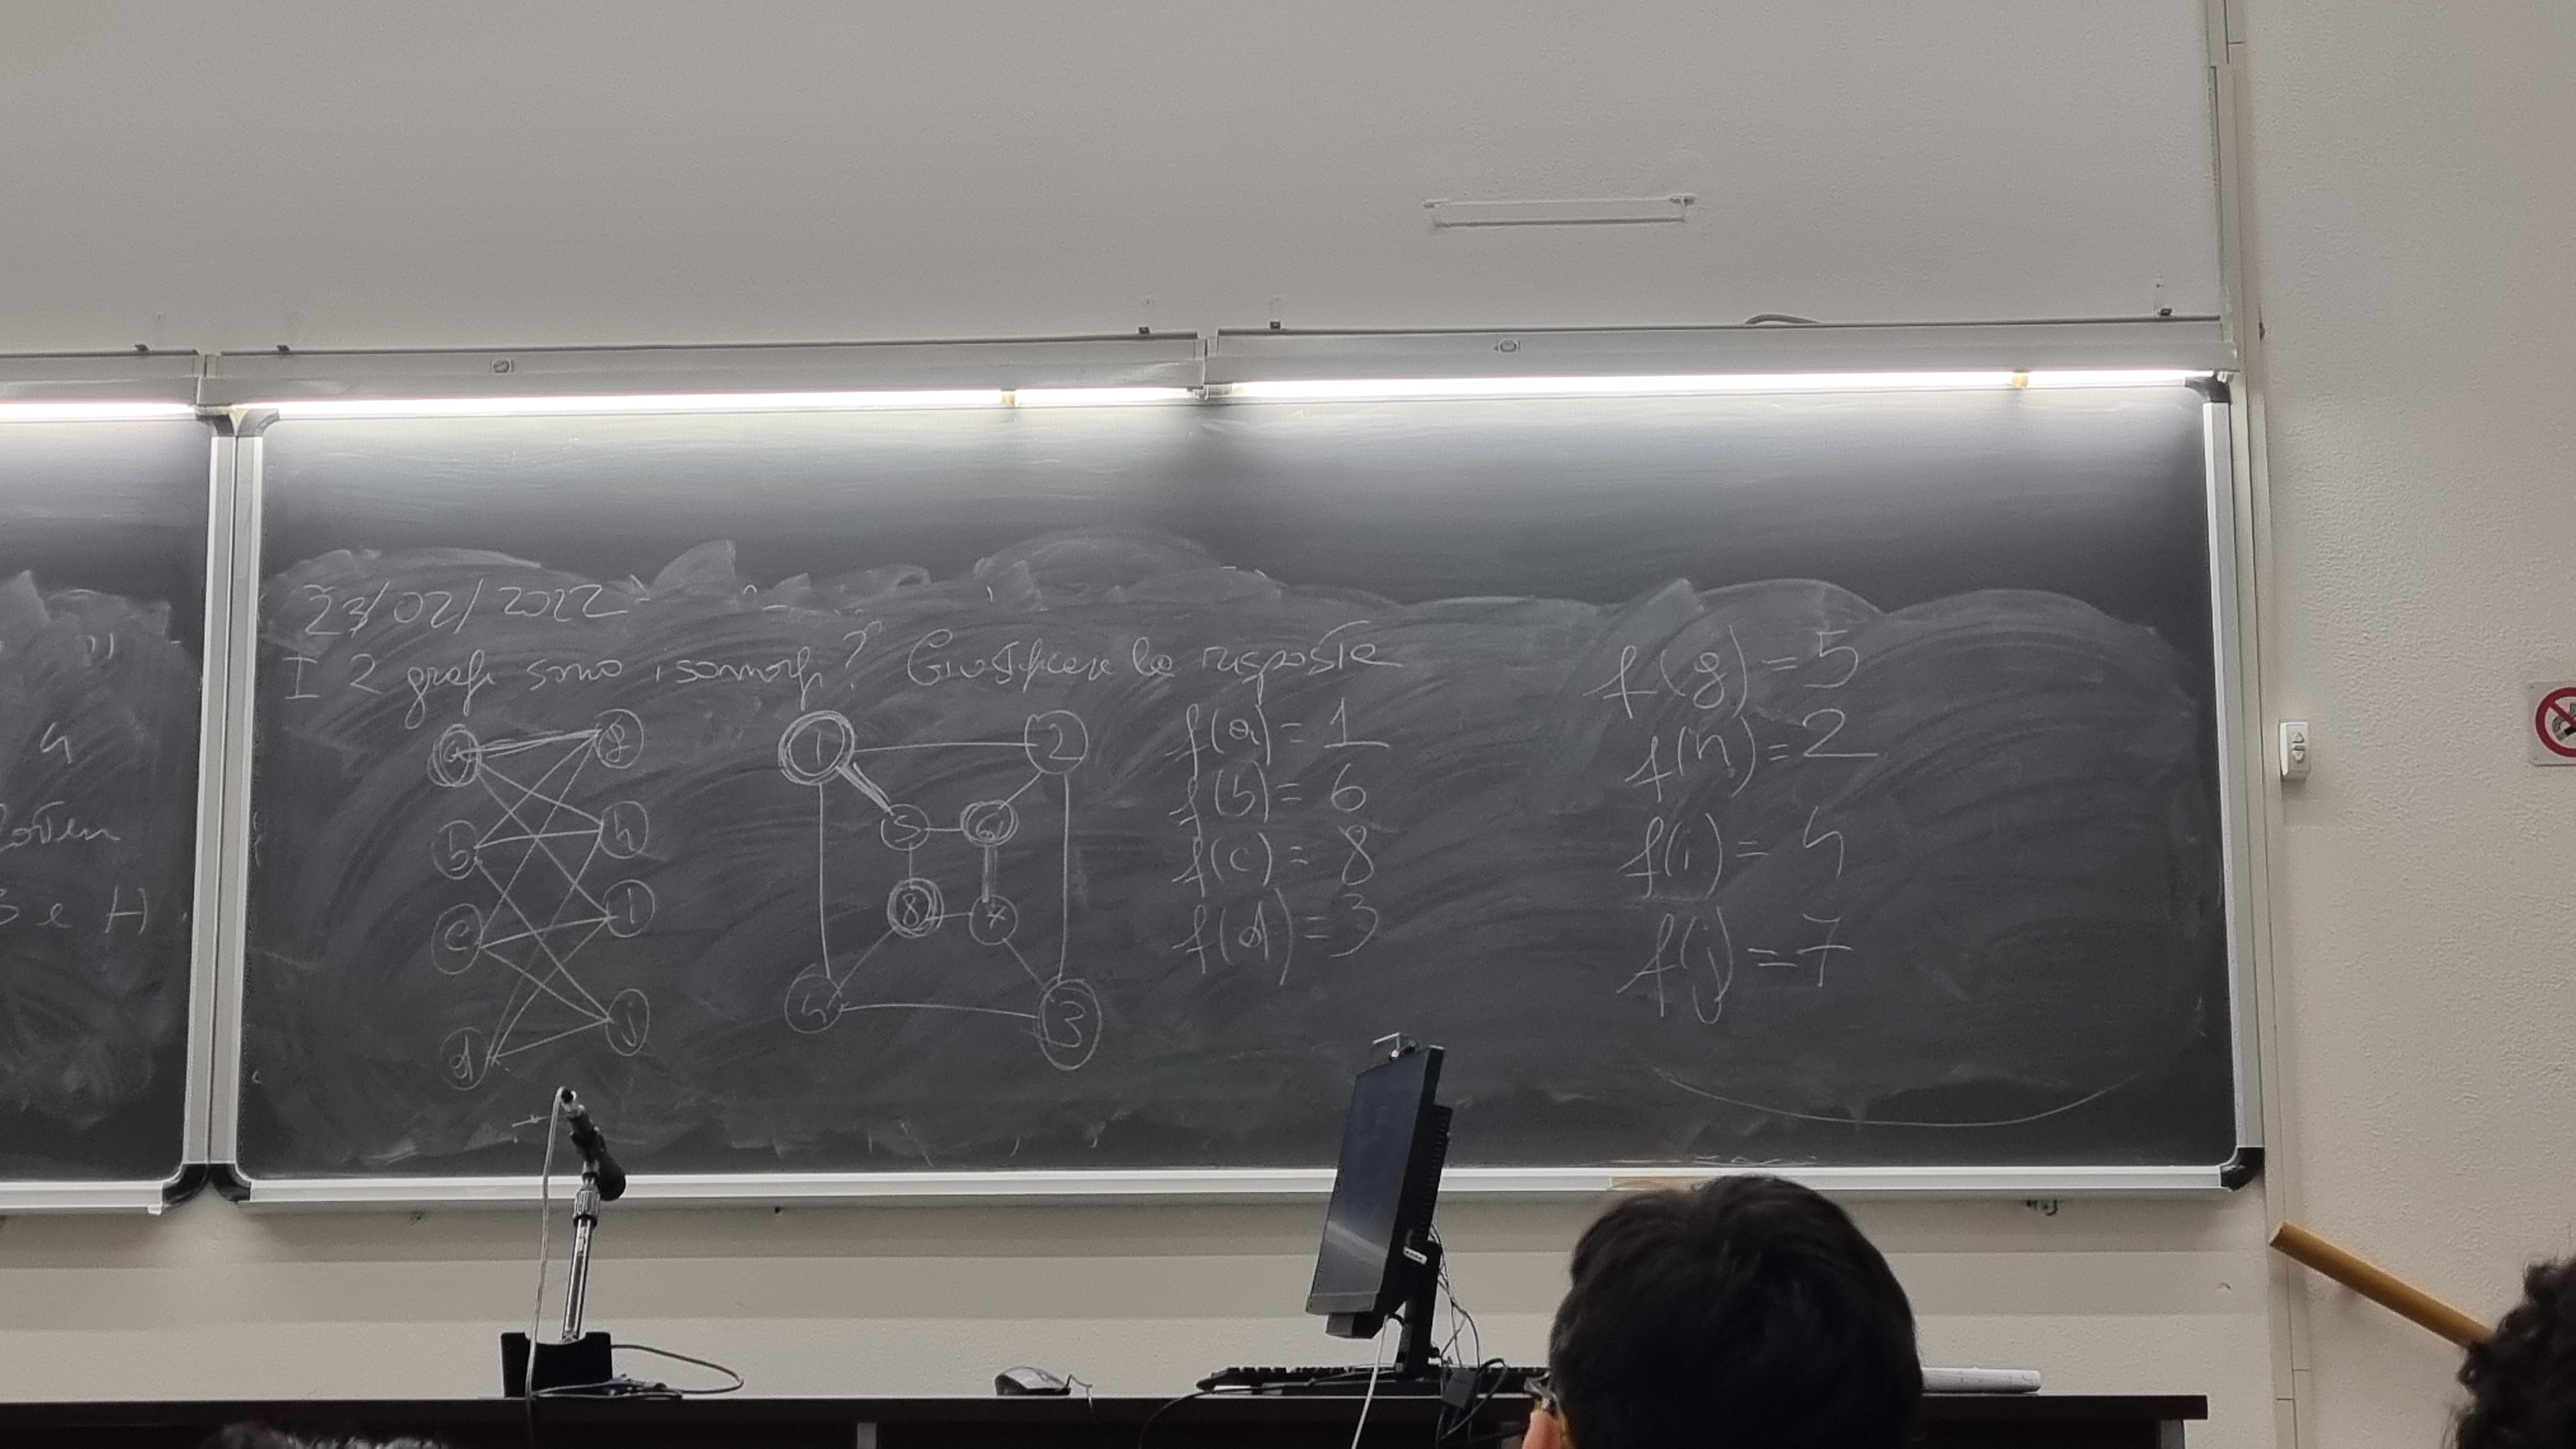 23/02/2022
I 2 grafi sono isomorfi? Giustificare la risposta
a g
b h
c i
d j
1 2
5 6
8 7
4 3
f(a) = 1
f(b) = 6
f(c) = 8
f(d) = 3
f(g) = 5
f(h) = 2
f(i) = 4
f(j) = 7
4
3 e H